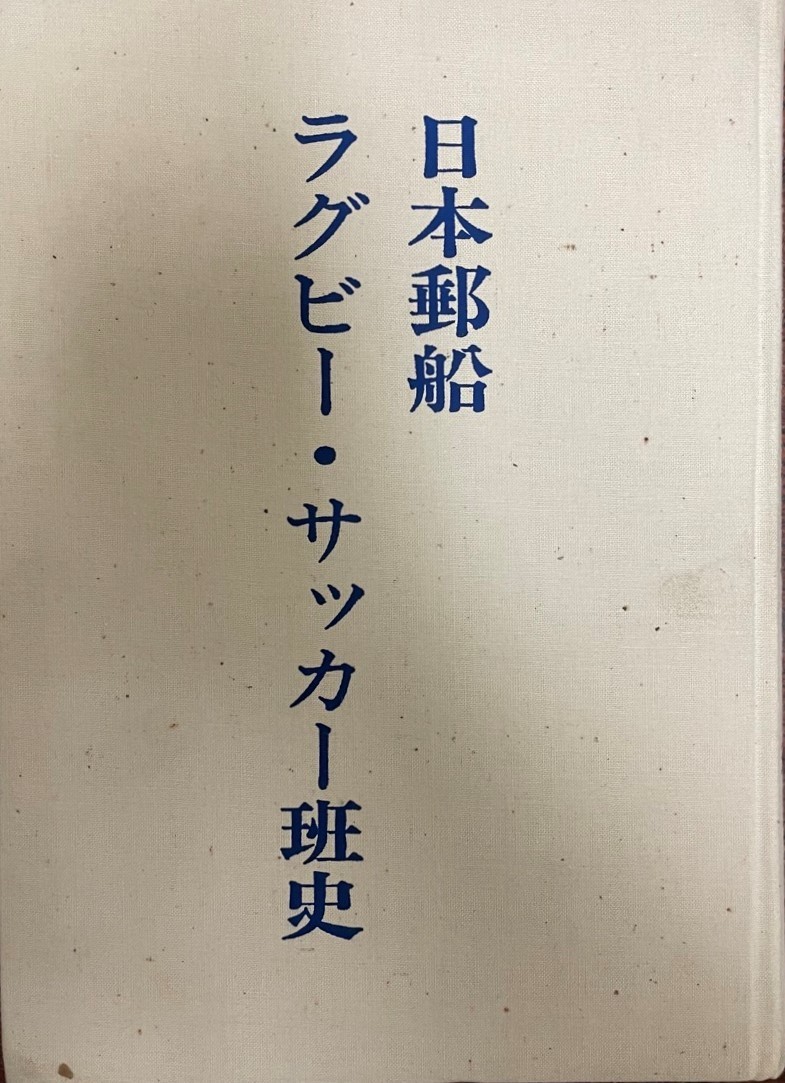 日本郵船
ラグビー・サッカー班史